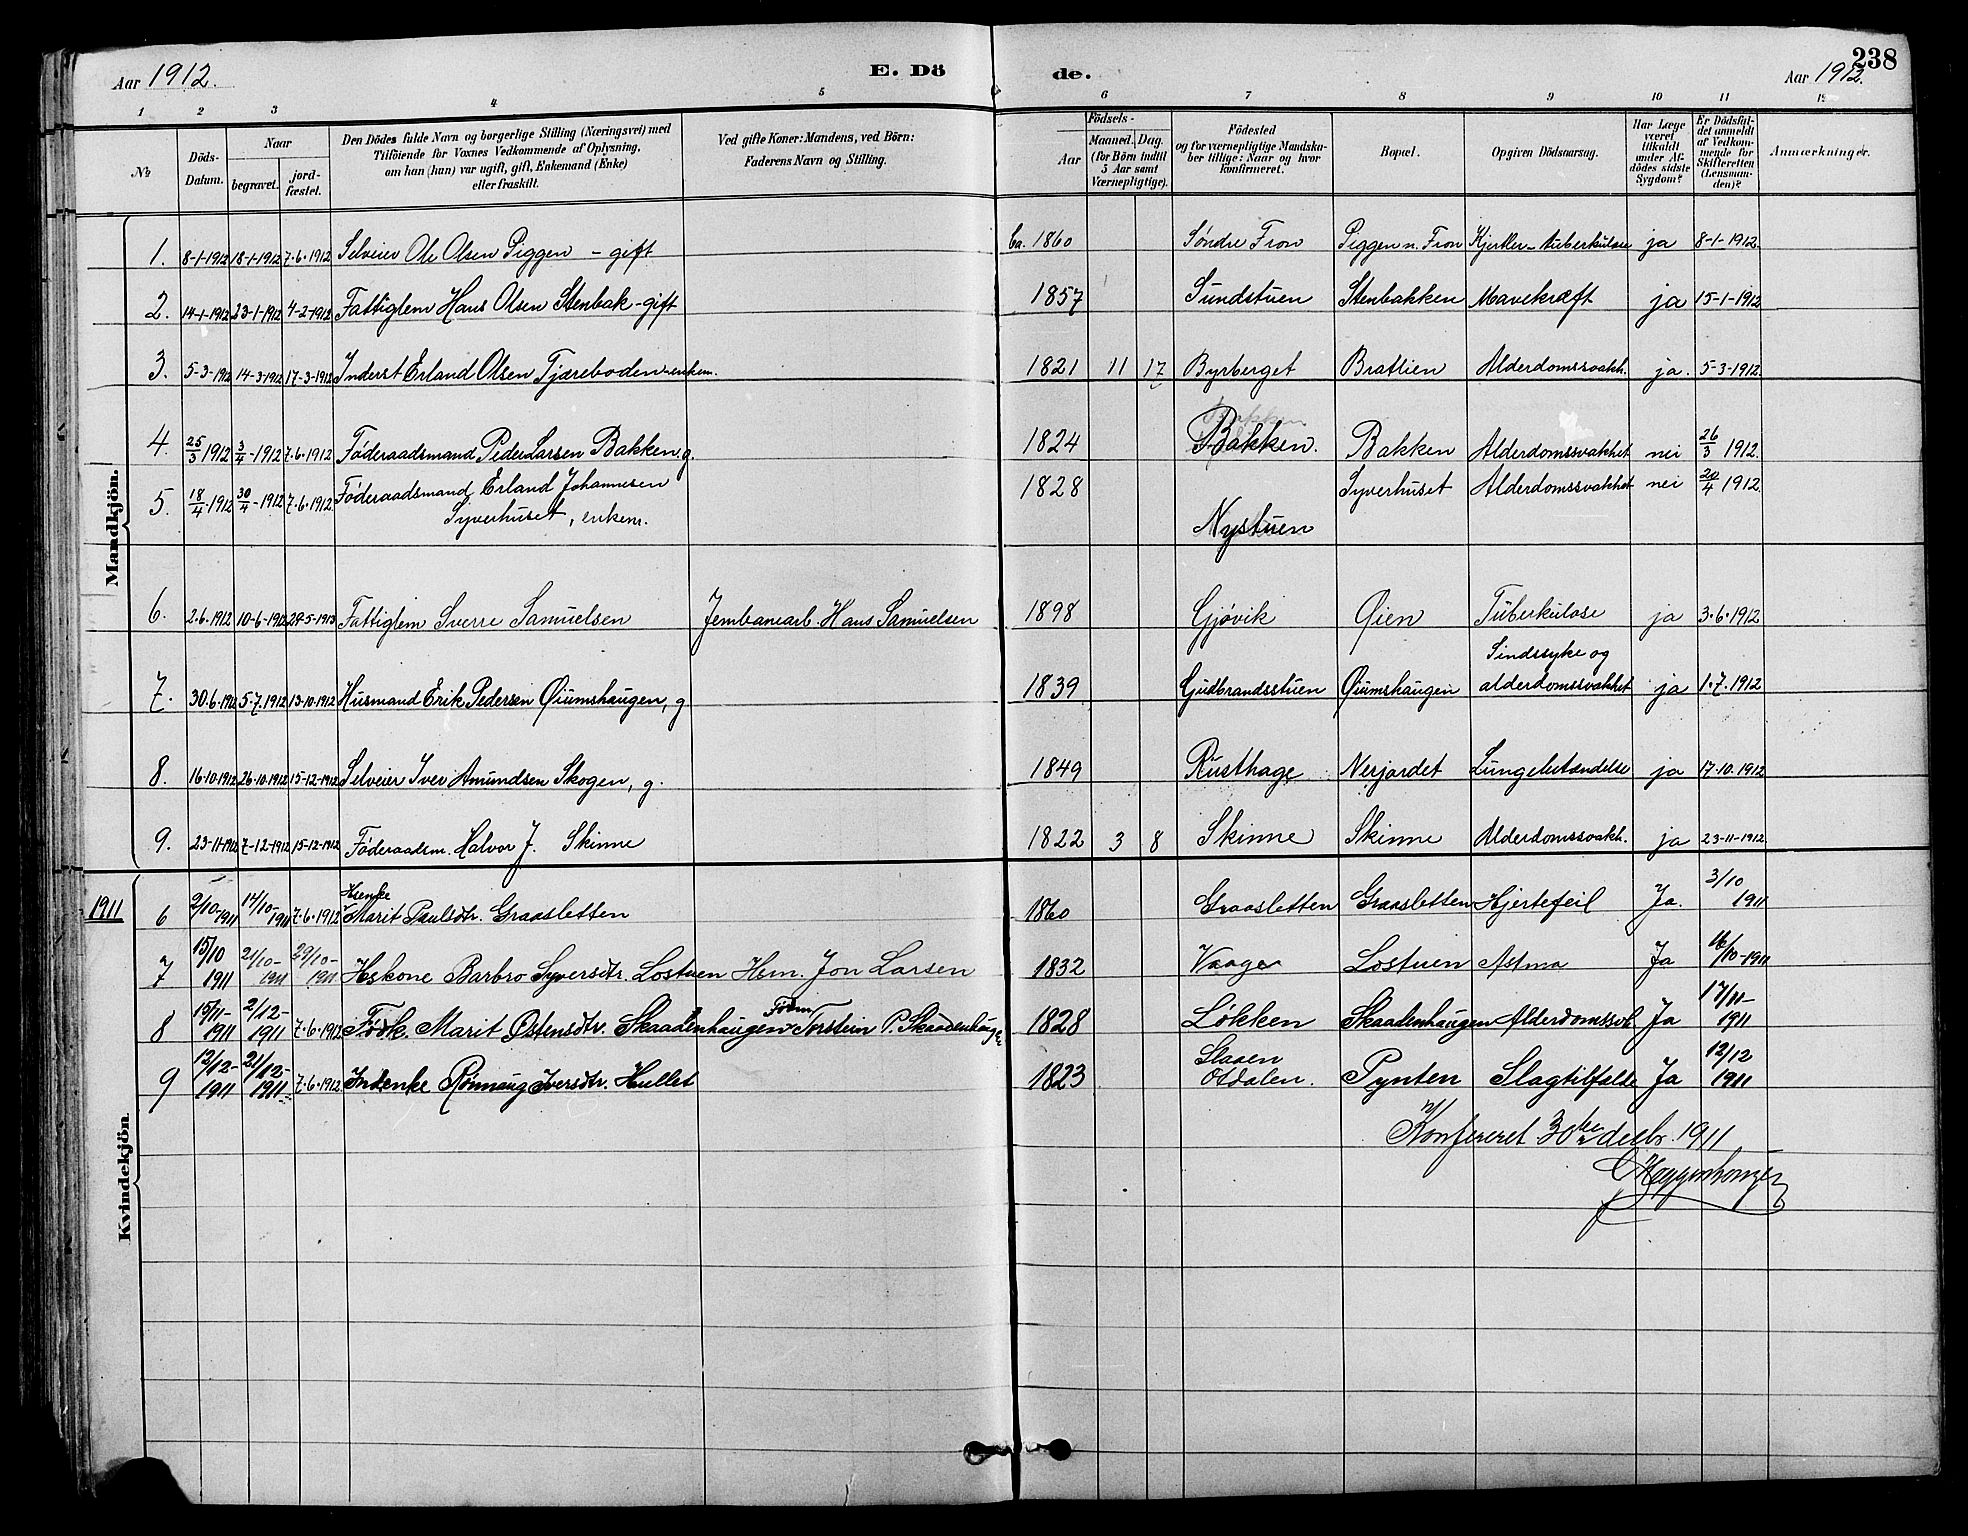 238
Aar 1912. E. Dö de. Aar 1912.
1 2 3 4 5 6 7 8 9 10 11 12
№ Döds-Datum. Naar begravet. jordfæstet. Den Dödes fulde Navn og borgerlige Stilling (Næringsvei) med Tilföiende for Voxnes Vedkommende af Oplysning, om han (hun) var ugift, gift, Enkemand (Enke) eller fraskilt. Ved gifte Koner: Mandens, ved Börn: Faderens Navn og Stilling. Födsels-Aar Maaned. Dag. (for Börn indtil 5 Aar samt Værnepligtige). Födested og for værnepligtige Mandskaber tillige: Naar og hvor konfirmeret. Bopæl. Opgiven Dödsaarsag. Har Læge været tilkaldt under Afdödes sidste Sygdom? Er Dödsfaldet anmeldt af Vedkommende for Skifteretten (Lensmanden)? Anmærkninger.
Mandkjön.
1. 8-1-1912 18-1-1912 7.6.1912 Selveier Ole Olsen Piggen - gift ca. 1860 Søndre Fron Piggen n. Fron Kjertler-tuberkulose ja 8-1-1912
2. 14-1-1912 23-1-1912 4-2-1912 Fattiglem Hans Olsen Stenbak - gift 1857 Sundstuen Stenbakken Mavekræft ja 15-1-1912
3. 5-3-1912 14-3-1912 17-3-1912 Inderst Erland Olsen Tjæreboden - enkem. 1821 11 17 Byrberget Bratlien Alderdomssvakh. ja. 5-3-1912
4. 25/3 1912 3/4-1912 7.6.1912 Føderaadsmand Peder Larsen Bakken g. 1824 Bakken. Bakken Alderdomssvakhet nei 26/3 1912
5. 18/4-1912 30/4-1912 7.6.1912 Føderaadsmand Erland Johannesen 1828 Syverhuset Alderdomssvakhet nei 20/4 1912
Syverhuset, enkem. Nystuen
6. 2.6.1912 10-6-1912 29-5-1913 Fattiglem Sverre Samuelsen Jernbanearb. Hans Samuelsen 1898 Gjøvik Øien Tuberkulose ja 3.6.1912
7. 30.6.1912 5.7.1912 13-10-1912 Husmand Erik Pedersen Øiumshaugen, g 1839 Gudbrandsstuen Øiumshaugen Sindssyke og alderdomssvakhet ja 1.7.1912
8. 16.10.1912 26.10.1912 15-12-1912 Selveier Iver Amundsen Skogen, g. 1849 Rusthage Nerjordet Lungebetændelse ja 17.10.1912
9. 23-11-1912 7-12-1912 15-12-1912 Føderaadsm. Halvor J. Skinne 1822 3 8 Skinne Skinne Alderdomssvakh. ja 23-11-1912
Kvindekjön
1911 6 2/10-1911 14/10-1911 7.6.1912 Marit Paulsdtr. Graasletten 1860 Graasletten Graasletten Hjertefeil Ja. 3/10 1911
7 15/10 1911 21/10-1911 29/10-1911 Hskone Barbro Syversdtr. Lostuen Hsm. Jon Larsen 1832 Vaage Lostuen Astma Ja 16/10-1911
8 15/11-1911 2/12-1911 7.6.1912 Födk. Marit Østensdtr. Skaadenhaugen Födm Torstein P. Skaadenhaugen 1828 Løkken Skaadenhaugen Alderdomssv. Ja 17/11-1911
9 12/12-1911 21/12-1911 7.6.1912 Indenke Rönnaug Iversdtr. Hullet 1823 Slaaen Otdalen. Pynten Slagtilfælde Ja 12/12 1911
Konfereret 30te decbr. 1911